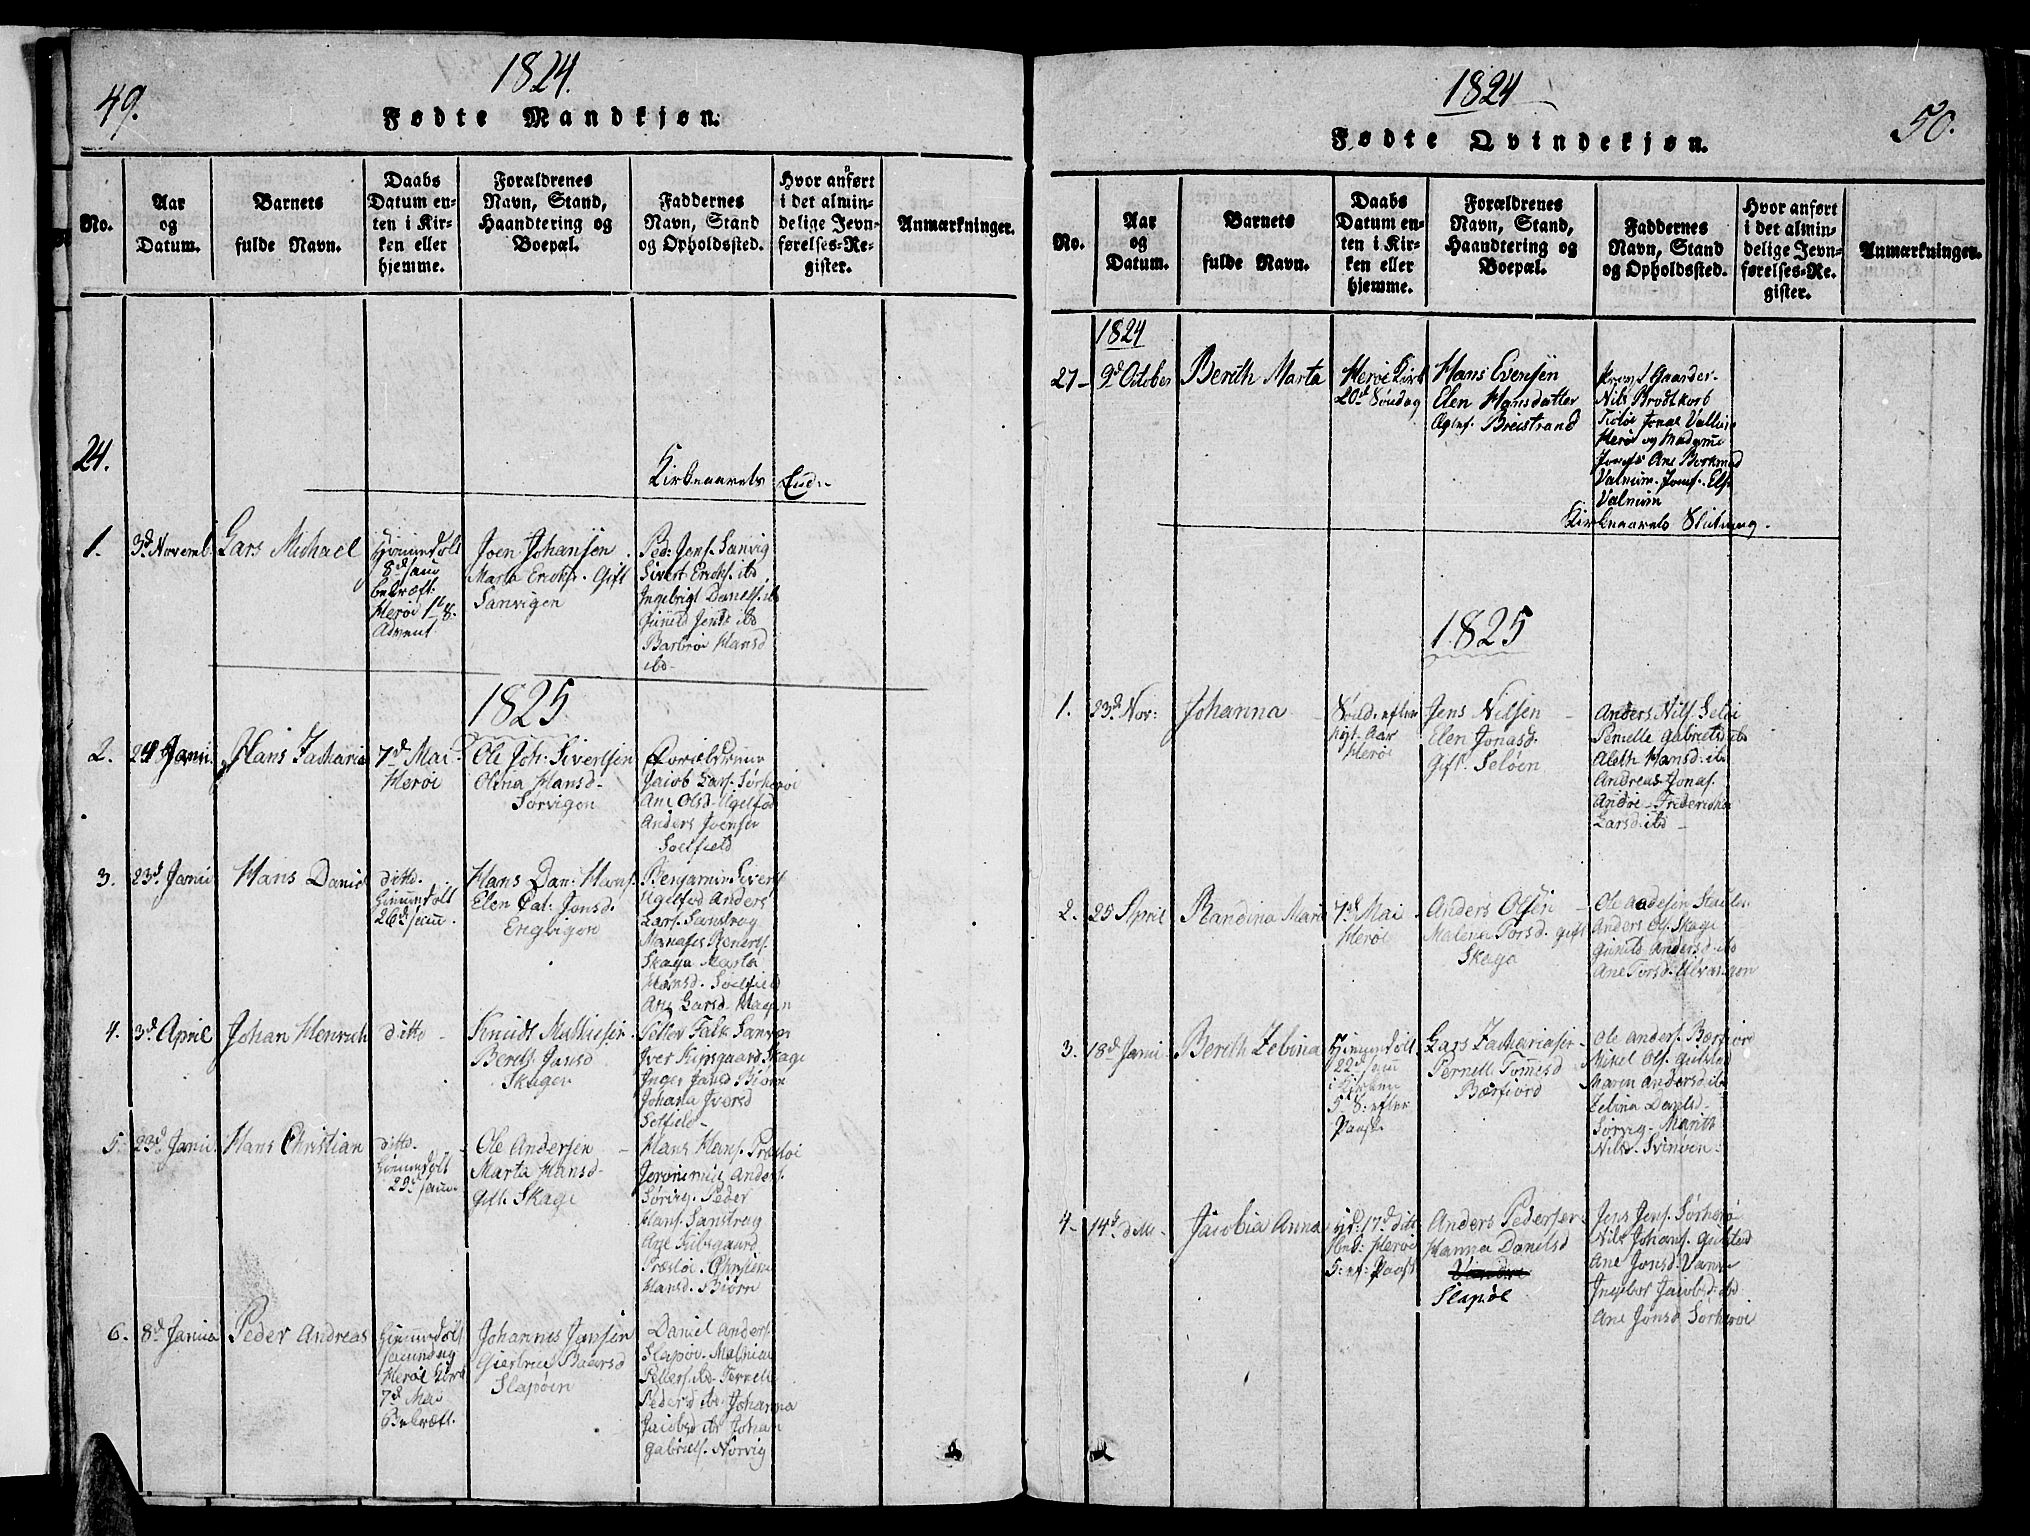 49.
1824.
Fødte Mandkjøn.
No.
Aar
og
Datum.
Barnets
fulde Navn.
Daabs
Datum en-
ten i Kir-
ken eller
hjemme.
Forældrenes
Navn, Stand,
Haandtering og
Boepæl.
Faddernes
Navn, Stand
og Opholdssted.
Hvor anført
i det almin-
delige Jevn-
førelses-Re-
gister.
Anmærkninger.
24.
Kirkeaarets Ende
1.
3d Novemb.
Lars Michael
Hiemmdøbt
8d
bekræft.
Herøe 1st S.
Advent
Joen Johansen
Marta Ericks. Gift
Sanvigen
Ped: Jens. Sanvig
Sivert Ericks. ibd
Ingebrigt Danels. ibd
Gunild Jensd ibd
Barbroe Hansd
ibd-
1825
2.
24 Janu.
Hans Zacharia
7d Mai
Herøe
Ole Joh: Sivertsen
Olina Hansd-
Sørvigen
Jacob Lars. Sørherøe
Ane Olsd
Anders Joensen
Soelfield
3.
23d Janu
Hans Daniel
ditto.
Hiemmdøbt
26d
Hans Dan: Hans.
Elen Cat: Jonsd.
Engvigen
Benjamin Siverts
Anders
Lars. Sanstrag
Skaga Marta
Hansd. Soelfield
Ane Larsd. Hagen
4.
3d April
Johan Henrich
ditto
Knudt Mathiesen
Bereth Jansd
Skagen
Petter Falk Sanvær
Iver Kipsgaard Skage
Inger Biørn
Johana Iversd
Selfield-
5.
23d Janu.
Hans Christian
ditto.
Hiemmdøbt
29d
Ole Andersen
Marta Hansd-
gift. Skage
Hans Hans. Præstøe
Jeronimus Anders.
Sørvig. Peder
Hans. Sanstrag
Ane Kibsgaard
Præstøe. Christine
Hansd. Biørn
6.
8d Janua
Peder Andreas
Hiemmdøbt
Herøe Kirk
7d Mai
Bekræft.
Johannes Jansen
Giertrue Baarsd
Slapøen
Daniel Anders.
Slapøe. Mathias
Petters. ibd. Pernele
Pedersd ibd. Johanna
Jacobsd ibd Johan
Gabriels. Norvig
1824
50.
Fødte Qvindekjøn.
No.
Aar
og
Datum.
Barnets
fulde Navn.
Daabs
Datum en-
ten i Kir-
ken eller
hjemme.
Forældrenes
Navn, Stand,
Haandtering og
Boepæl.
Faddernes
Navn, Stand
og Opholdssted.
Hvor anført
i det almin-
delige Jevn-
førelses-Re-
gister.
Anmærkninger.
1824
27-
9d October
Bereth Marta
Herøe Kirk
20d Søndag
Hans Evensen
Elen Hansdatter
Breistrand
Provst Gaarder.
Nils Brodtkorb
Tiøtøe Jonas
Herøe og Madame
Ane Borkmad
Valnum. Else
Valnum
Kirkeaarets Slutning.
1825
1.
23d Nov:
Johanna
Sønd. efter
Nyt Aar
Herøe
Jens Nilsen
Elen Jonasd.
Gift. Seløen
Anders Nils. Seløe
Pernelle Gabrielsd ibd
Aleth Hansd. ibd
Andreas Jonas.
Andøe. Friderikke
Larsd. ibd -
2.
25 April
Randina Marie
7d Mai
Herøe
Anders Olsen
Malena Torsd. gift
Skaga
Ole
Anders Ols. Skage
Gunild Andersd. ibd
Ane Torsd. Ulvangen
3.
18d Janu
Bereth Zebina
Hiemmdøbt
22d
i Kirken
5 S. efter
Paaske
Lars Zachariasen
Pernell Tomesd
Bærfiord
Ole Anders. Bærfiord
Mikel Ols.
Maren Andersd ibd
Zebina Danelsd-
Sørvig. Marith
Nilsd. Svinøen-
4-
14d
Jacobia Anna
17d dito
Herøe
5: ef: Paaske
Anders Pedersen
Hanna Danelsd
Slapøe
Jens Jens. Sørherø
Nils Johans.
Ane Jonsd.
Ingebor Jacobsd. ibd
Ane Jonsd Sørherøe